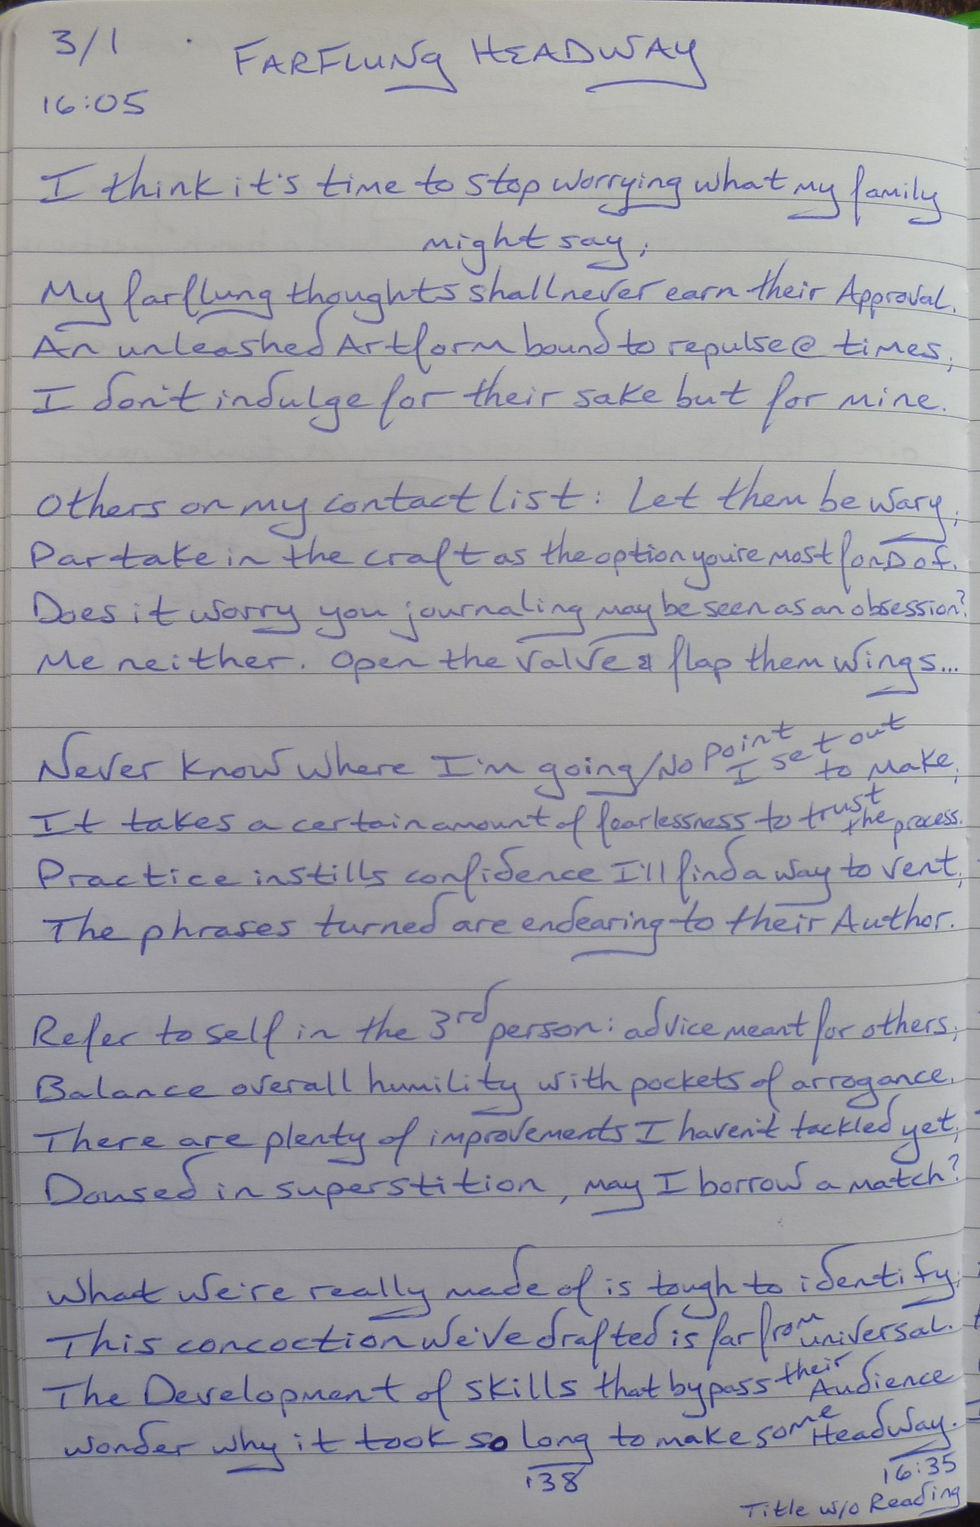 3/1
FARFLUNG HEADWAY
16:05
I think it's time to stop worrying what my family
might say;
My farflung thoughts shall never earn their Approval.
An unleashed Artform bound to repulse @ times;
I don't indulge for their sake but for mine.
Others on my contact list: Let them be wary;
Partake in the craft as the option you're most fond of.
Does it worry you journaling may be seen as an obsession?
Me neither. Open the valve & flap them wings...
Never know where I'm going/No point I set out to make;
It takes a certain amount of fearlessness to trust the process.
Practice instills confidence I'll find a way to vent;
The phrases turned are endearing to their Author.
Refer to self in the 3rd person: advice meant for others;
Balance overall humility with pockets of arrogance.
There are plenty of improvements I haven't tackled yet;
Doused in superstition, may I borrow a match?
What we're really made of is tough to identify;
This concoction we've drafted is far from universal.
The Development of skills that bypass their Audience
wonder why it took so long to make some Headway.
138
16:35
Title w/o Reading